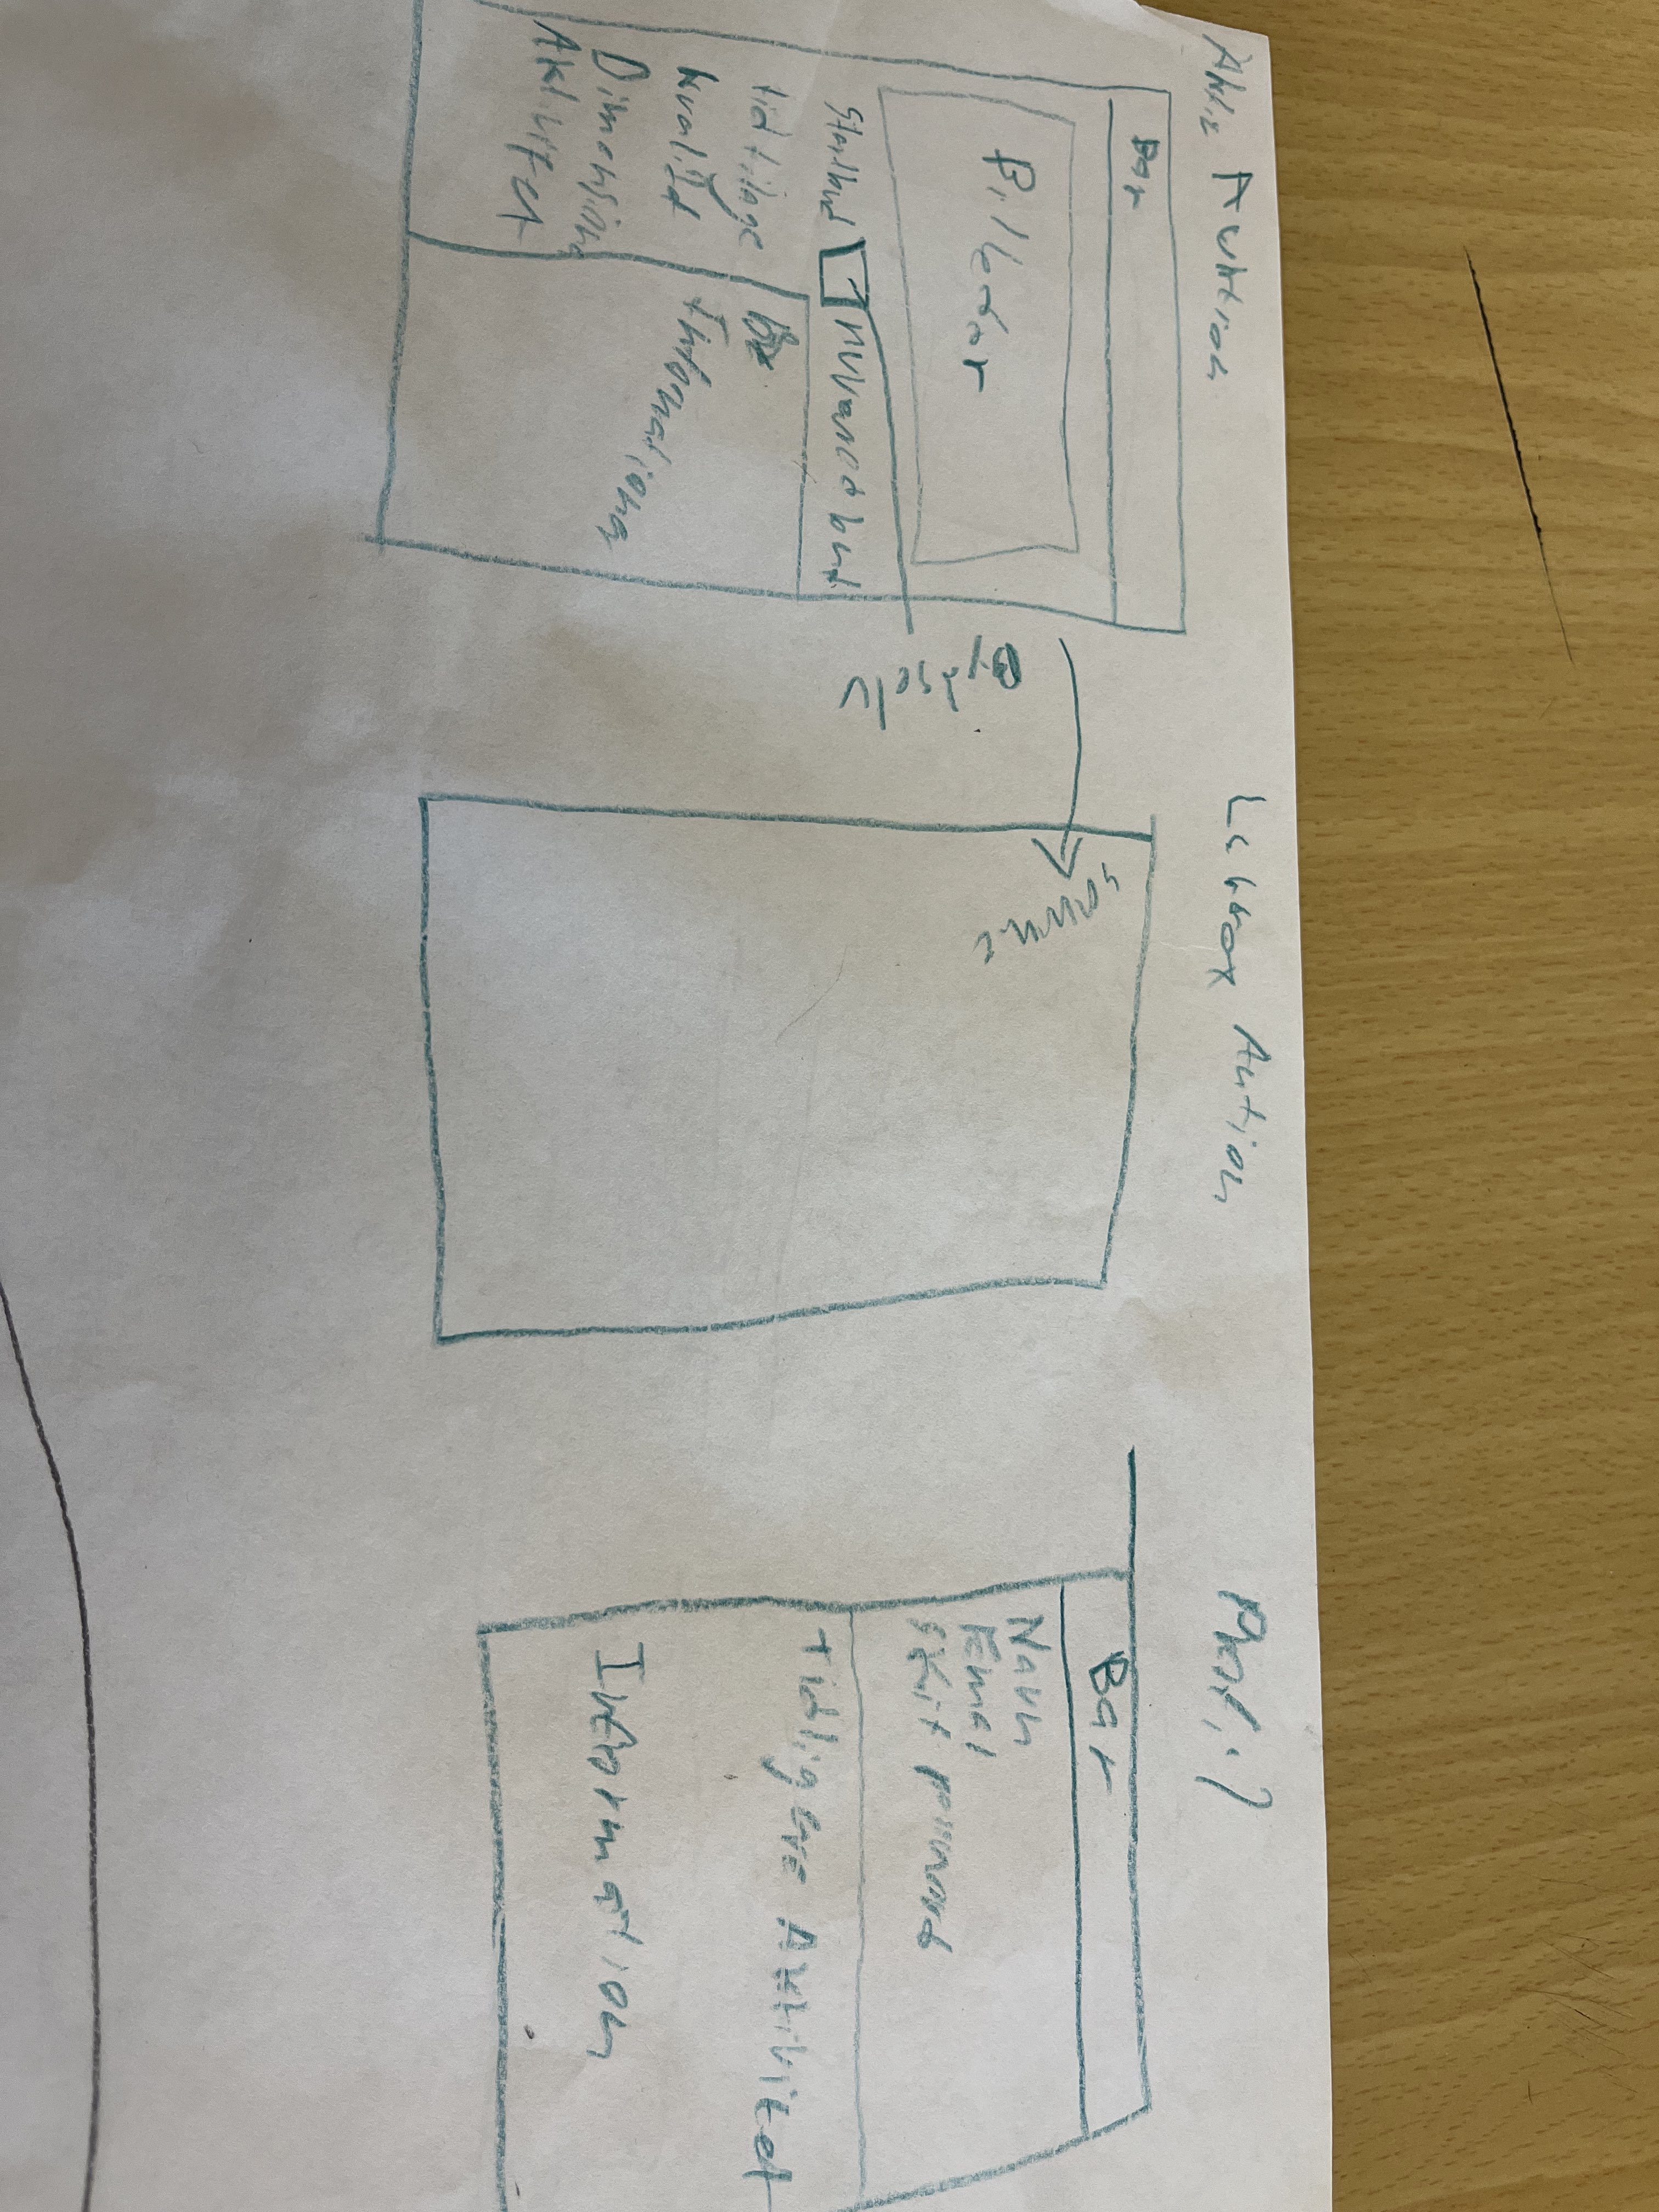 Aktiv Auktion
Bar
Billeder
Startbud
nuværende bud
tid tilage
kvalitd
Dimension
Aktivitet
Informationer
same
Aution
Profil
Bar
Navn
Email
skit password
tidligere Aktivitet
Information